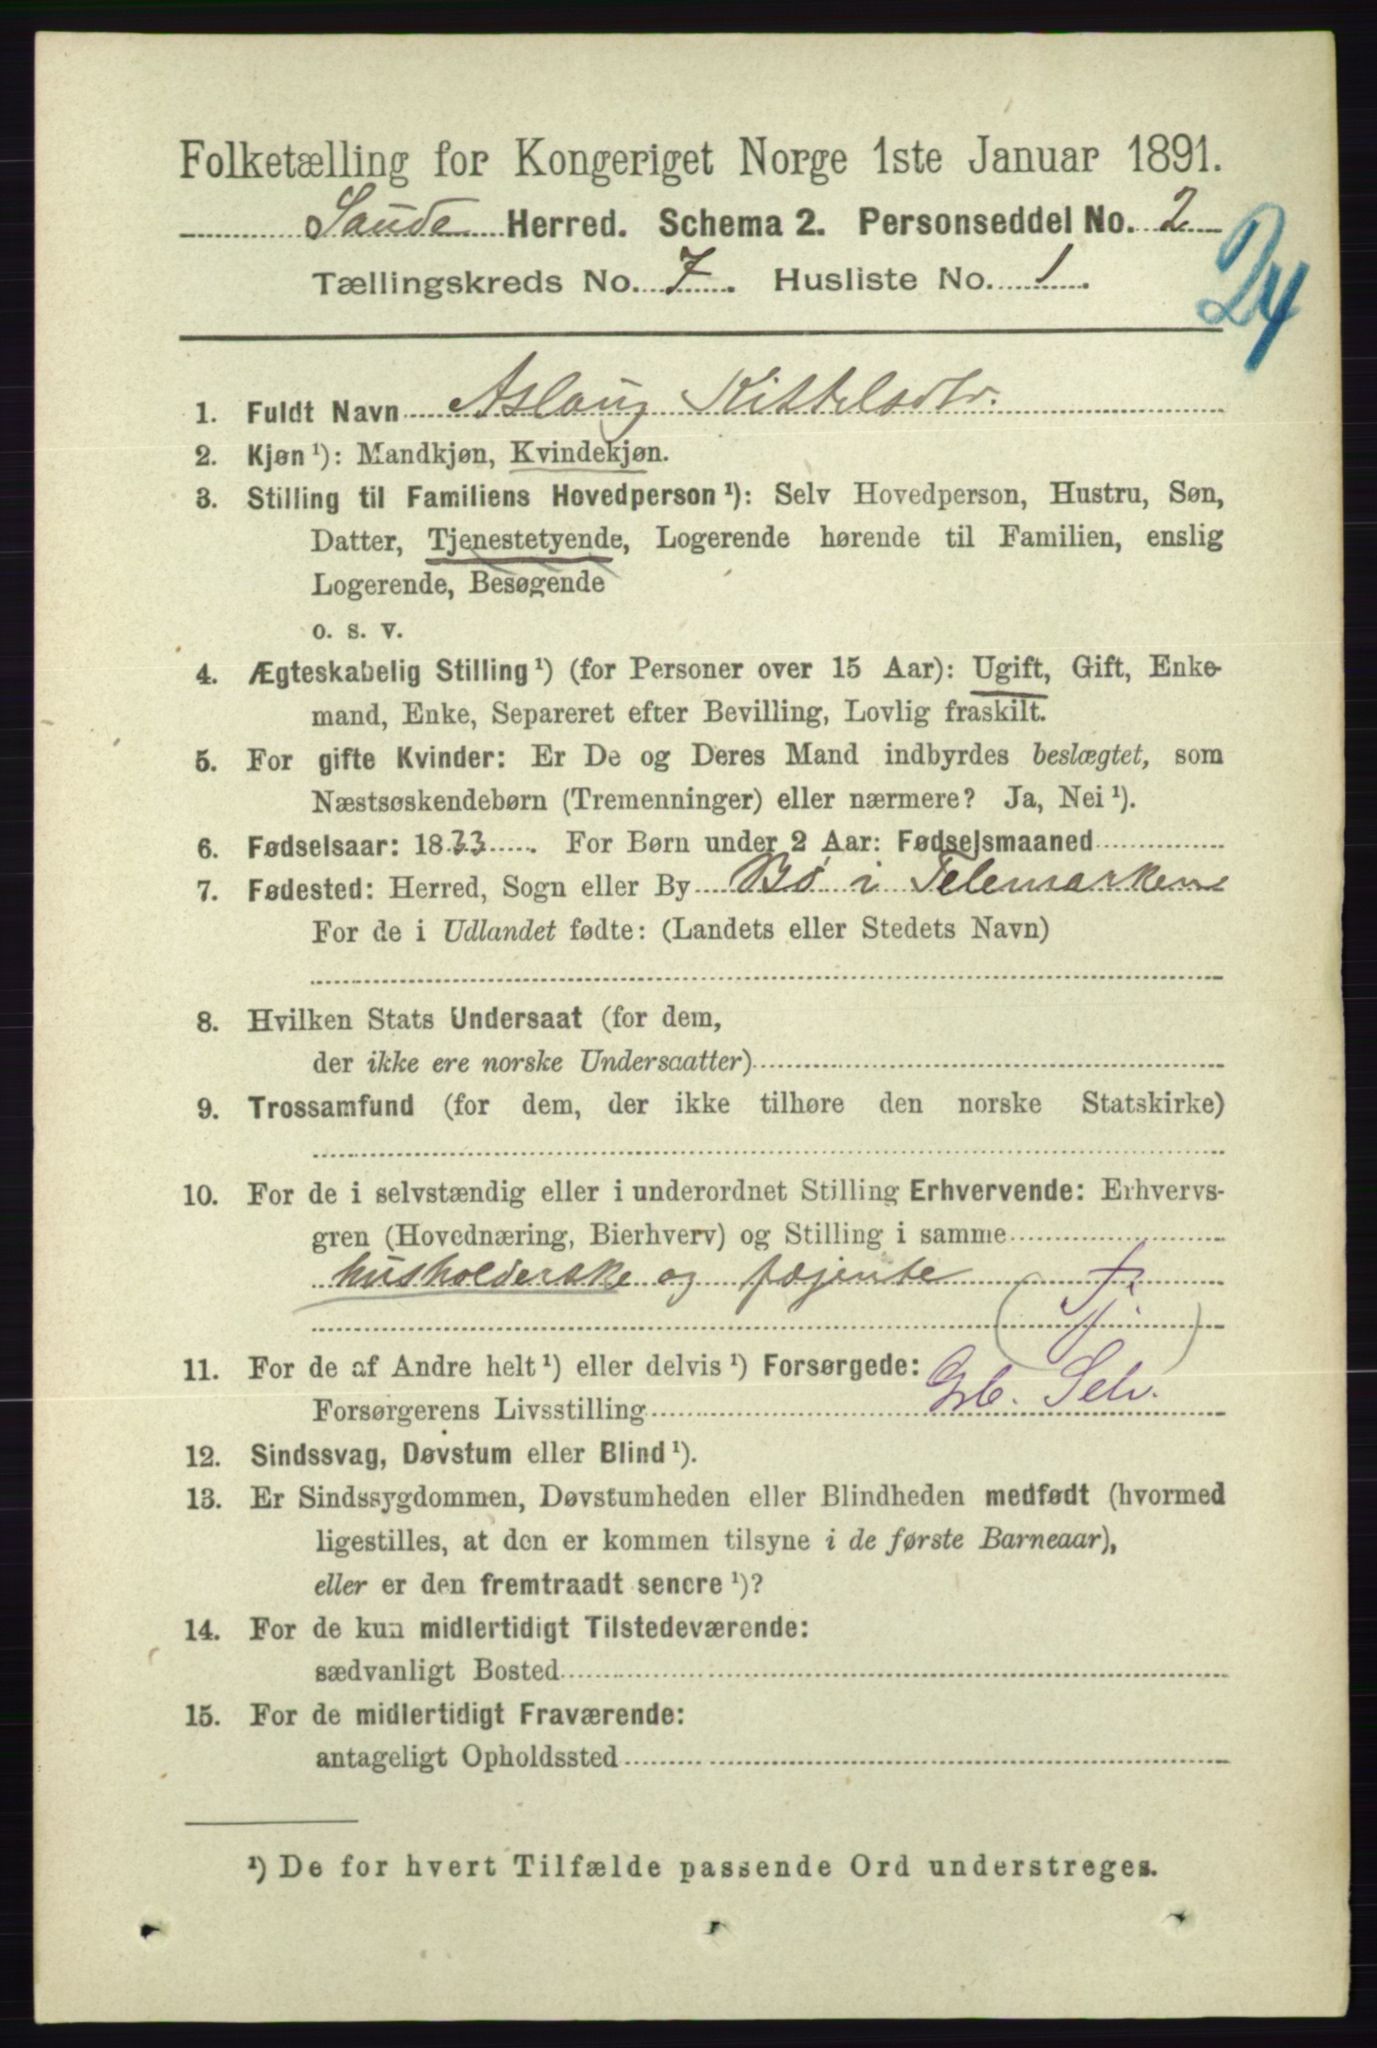 Folketælling for Kongeriget Norge 1ste Januar 1891.
Saude Herred. Schema 2. Personseddel No. 2
24
Tællingskreds No. 7. Husliste No. 1.
1. Fuldt Navn Aslaug Kittelsdtr.
2. Kjøn ¹): Mandkjøn, Kvindekjøn.
3. Stilling til Familiens Hovedperson ¹): Selv Hovedperson, Hustru, Søn,
Datter, Tjenestetyende, Logerende hørende til Familien, enslig
Logerende, Besøgende
o. s. v.
4. Ægteskabelig Stilling ¹) (for Personer over 15 Aar): Ugift, Gift, Enke-
mand, Enke, Separeret efter Bevilling, Lovlig fraskilt.
5. For gifte Kvinder: Er De og Deres Mand indbyrdes beslægtet, som
Næstsøskendebørn (Tremenninger) eller nærmere? Ja, Nei ¹).
6. Fødselsaar: 1833. For Børn under 2 Aar: Fødselsmaaned
7. Fødested: Herred, Sogn eller By Bø i Telemarken
For de i Udlandet fødte: (Landets eller Stedets Navn)
8. Hvilken Stats Undersaat (for dem,
der ikke ere norske Undersaatter)
9. Trossamfund (for dem, der ikke tilhøre den norske Statskirke)
10. For de i selvstændig eller i underordnet Stilling Erhvervende: Erhvervs-
gren (Hovednæring, Bierhverv) og Stilling i samme
husholderske og fæjente
11. For de af Andre helt ¹) eller delvis ¹) Forsørgede:
Forsørgerens Livsstilling Grb. Selv.
12. Sindssvag, Døvstum eller Blind ¹).
13. Er Sindssygdommen, Døvstumheden eller Blindheden medfødt (hvormed
ligestilles, at den er kommen tilsyne i de første Barneaar),
eller er den fremtraadt senere ¹)?
14. For de kun midlertidigt Tilstedeværende:
sædvanligt Bosted
15. For de midlertidigt Fraværende:
antageligt Opholdssted
¹) De for hvert Tilfælde passende Ord understreges.